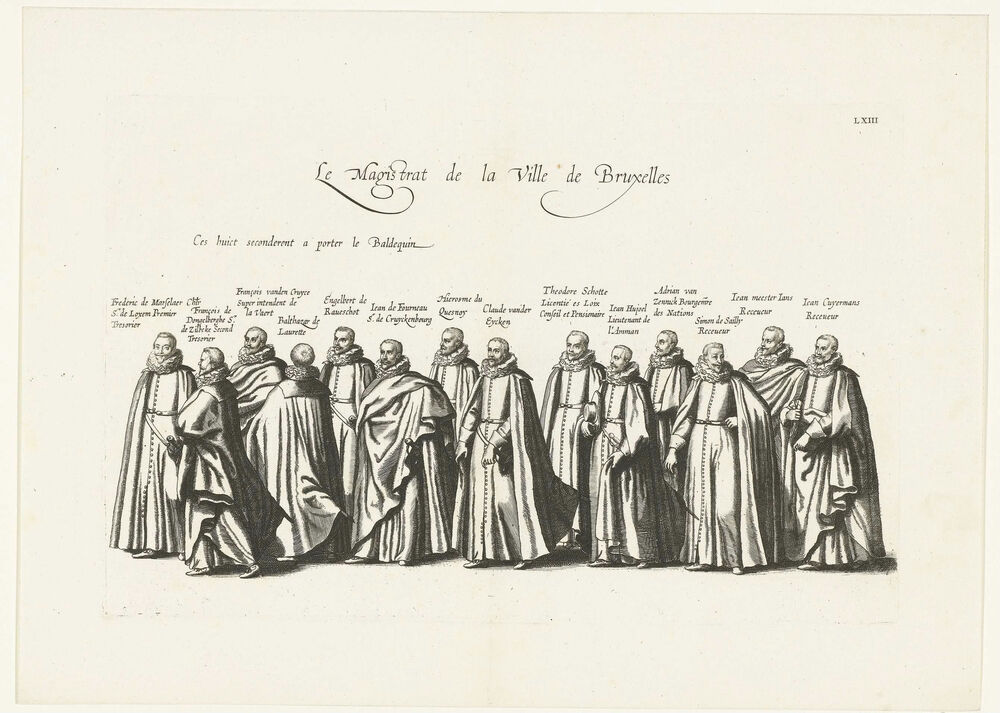 LXIII
Le Magistrat de la Ville de Bruxelles
Ces huict seconderent a porter le Baldequin
Frederic de Marselaer
Sr. de Loxem Premier
Tresorier
Chlr
François de
Dongelberghe Sr.
de Zillicke Second
Tresorier
François vanden Cruyce
Super intendent de
la Vaert
Balthazar de
Laurette
Engelbert de
Raueschot
Iean de Fourneau
Sr. de Cruyckenbourg
Hierosme du
Quesnoy
Claude vander
Eycken
Theodore Schotte
Licentié es Loix
Conseil et Pensionaire
Iean Huioel
Lieutenant de
l'Amman
Adrian van
Zennick Bourgemre
des Nations
Simon de Sailly
Receueur
Iean meester Ians
Receueur
Iean Cuyermans
Receueur